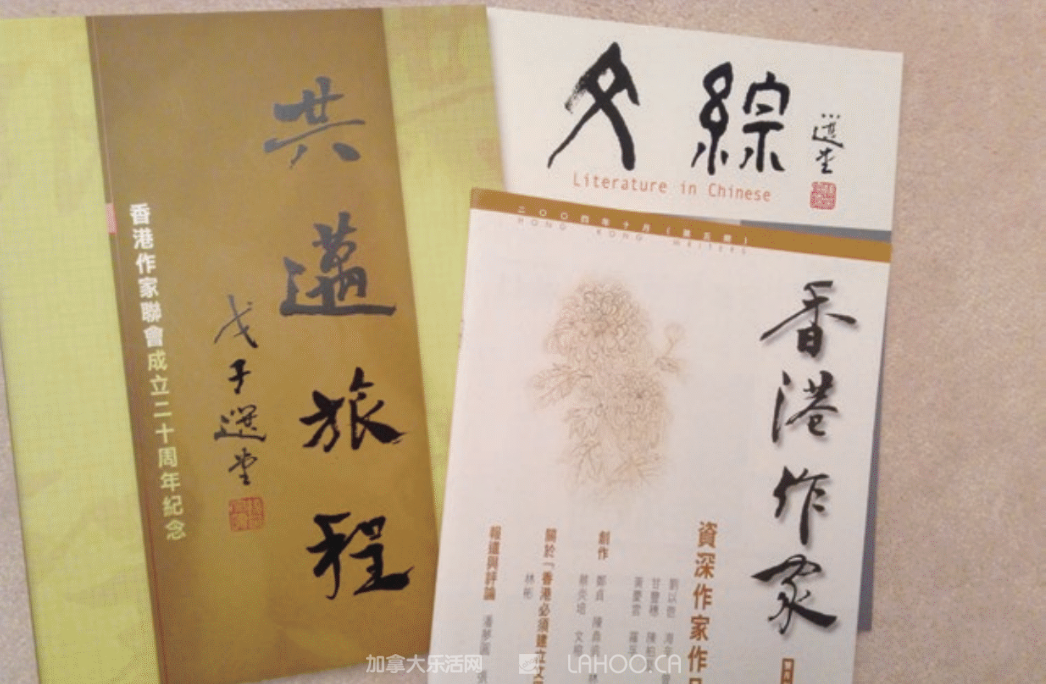 共邁旅程
戊子選堂
香港作家聯會成立二十周年紀念
文綜
選堂
Literature in Chinese
二〇〇四年十月(第五期)
HONG KONG WRITERS
香港作家
資深作家作品
劉以鬯 海辛
甘豐穗 陳
黃慶雲 羅
創作
鄭貞 陳鼎 林
蔡炎培 文
關於「香港必須建立文
林彬
報道與評論
潘夢 張
加拿大乐活网 LAHOO.CA